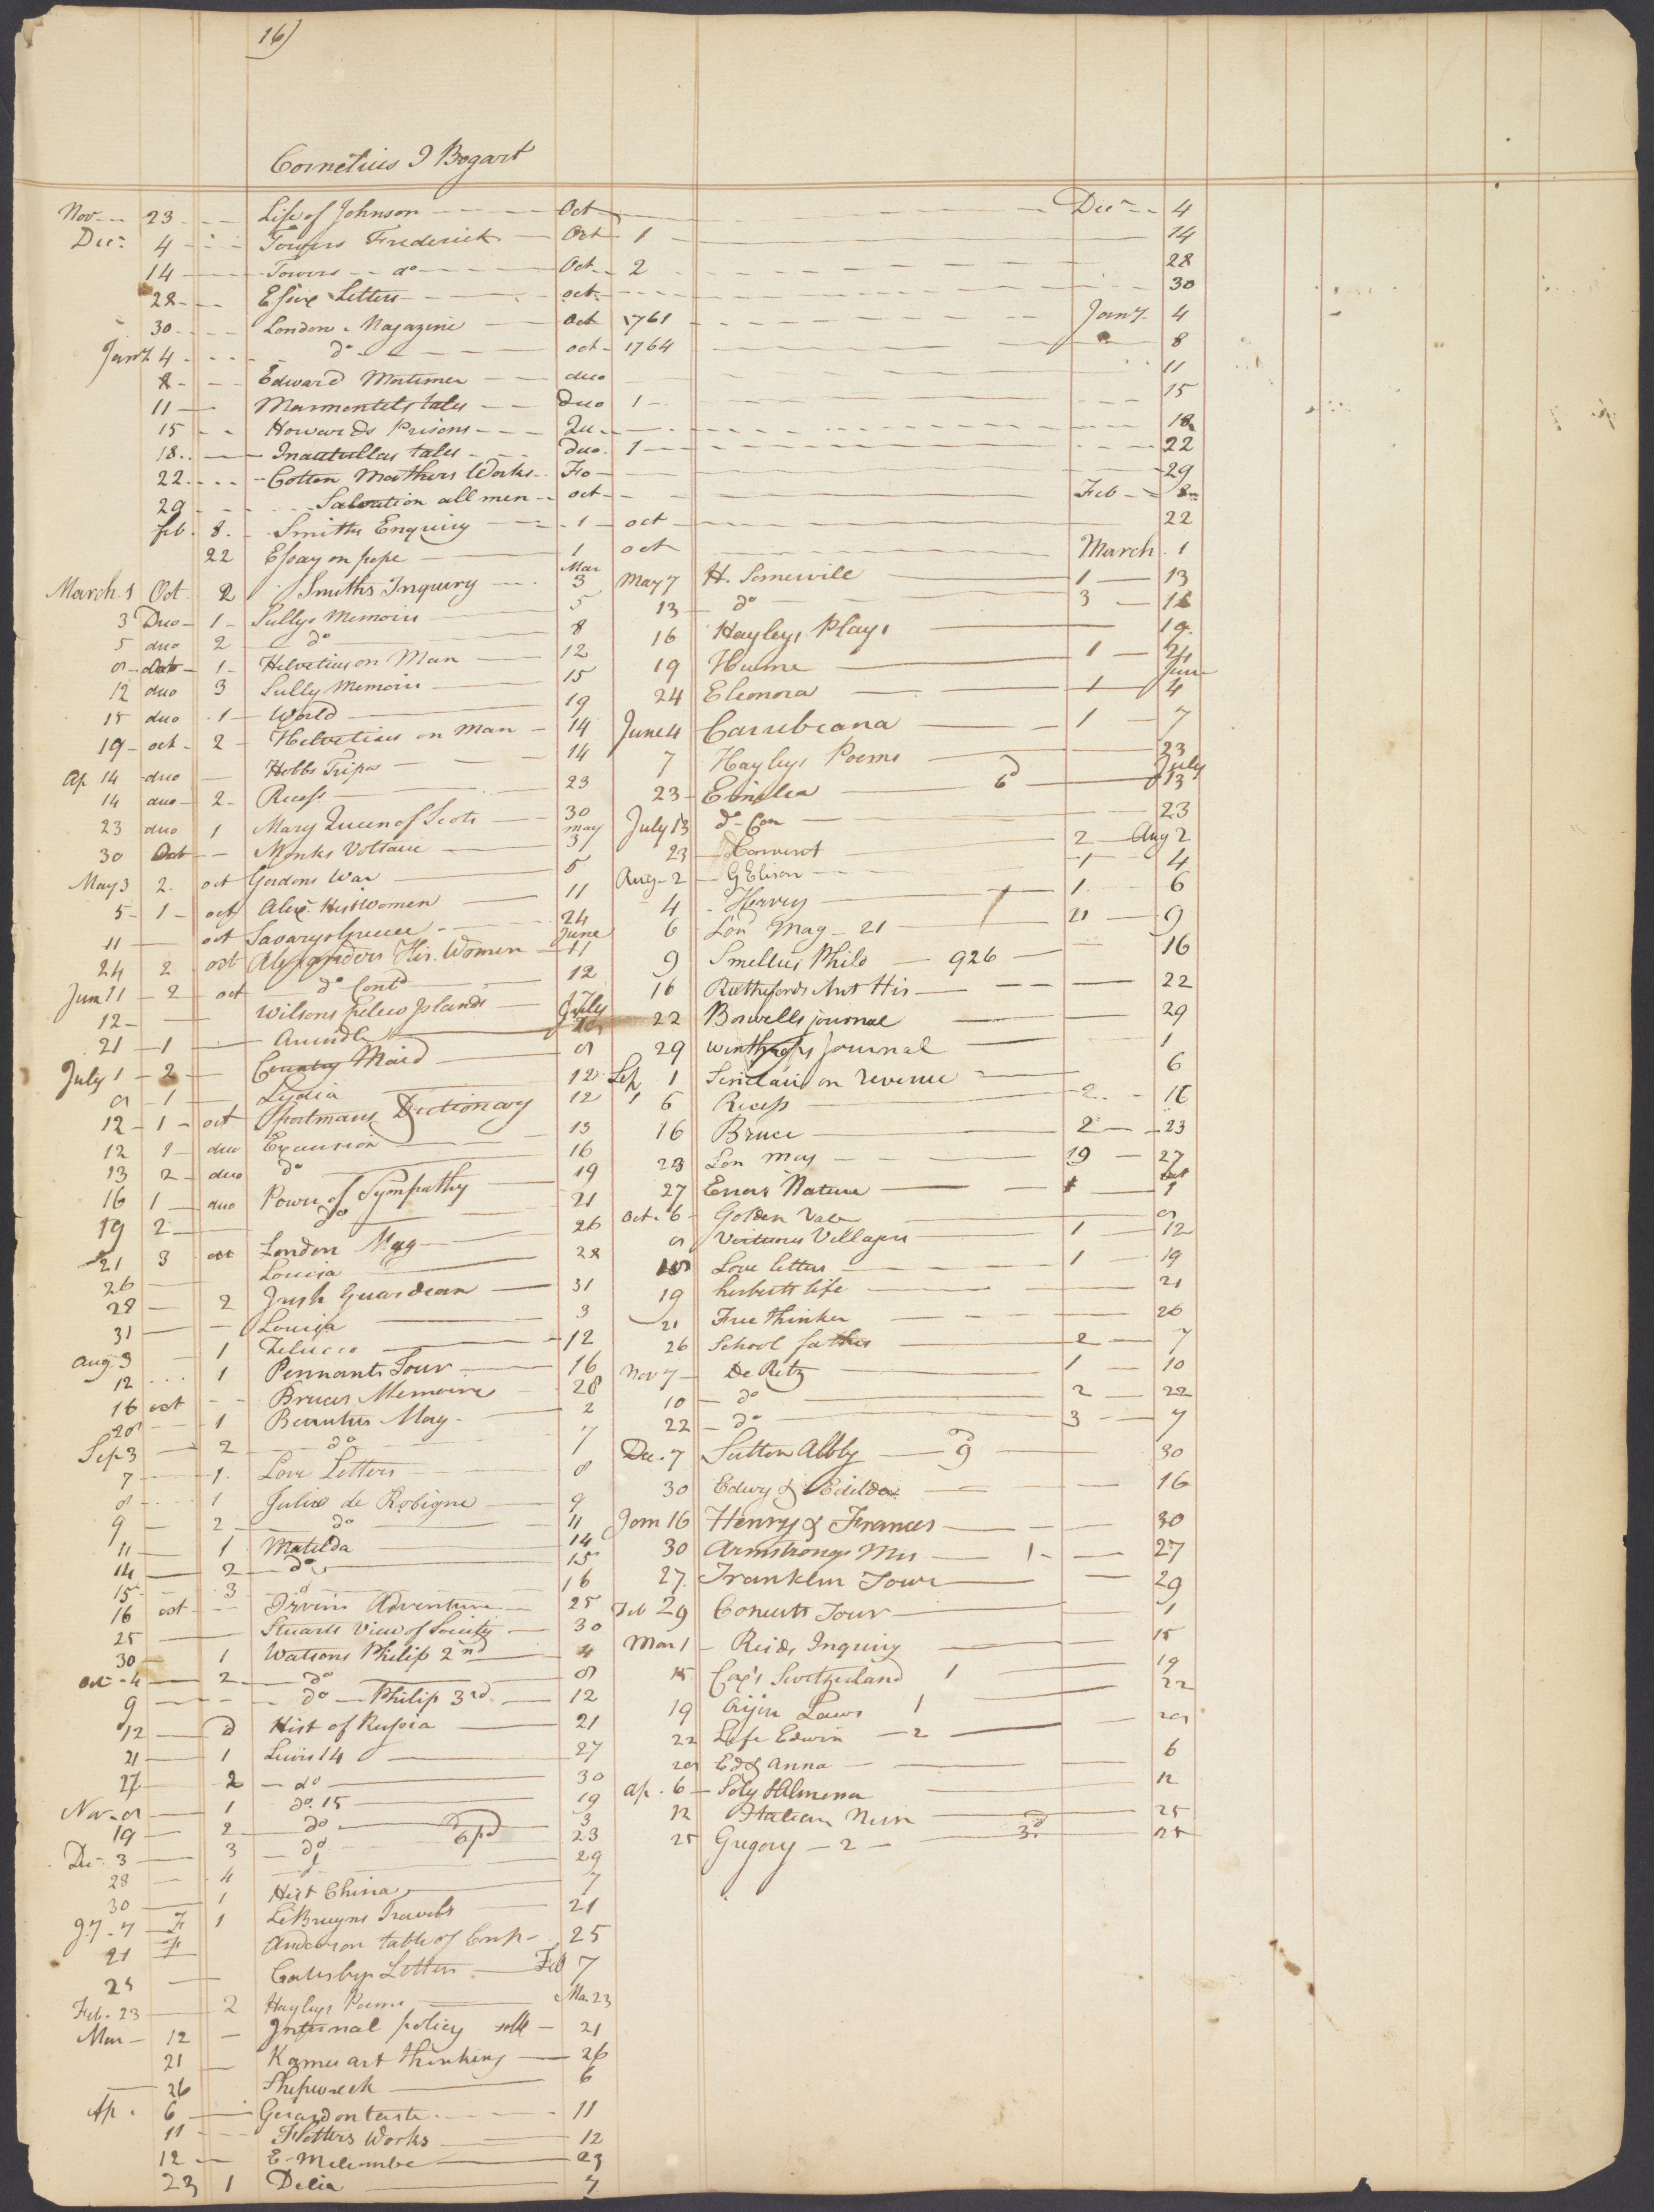 16)
Cornelius I Bogart
Nov 23 Life of Johnson Oct Decr 4
Decr 4 Towers Frederick Oct 1 14
14 Towers do Oct 2 28
28 Letters oct 30
30 London Magazine Oct 1761 Jany 4
Jany 4 do oct 1764 8
8 Edward Mortimer duo 11
11 Marmontels tales Duo 1 15
15 Howards Prisons Qu 18
18 Inatullas tales duo 1 22
22 Cotton Mathers Works Fo 29
29 Salvation all men oct Feb 8
feb 8 Smiths Enquiry 1 oct 22
22 Essay on pope 1 oct March 1
March 1 Oct 2 Smiths Inquiry Mar 3
3 Duo 1 Sullys Memoirs 5
5 duo 2 do 8
8 Oct 1 Helvetius on Man 12
12 duo 3 Sully Memoirs 15
15 duo 1 World 19
19 oct 2 Helvetius on Man 14
Ap 14 duo Hobbs Trips 14
14 duo 2 Recess 23
23 duo 1 Mary Queen of Scots 30
30 Oct Monks Voltaire may 3
May 3 2 oct Gordons War 5
5 1 oct Alex. Hist Women 11
11 oct Savarys Greece 24
24 2 oct Alexanders His. Women June 11
June 11 2 oct do Contd 12
12 Wilsons pelew Islands
21 1 Arundle July
July 1 2 Country Maid 8
8 1 Lydia 12
12 1 oct Sportmans Dictionary 12
12 1 duo Excursion 13
13 2 duo do 16
16 1 duo Power of Sympathy 19
19 2 do 21
21 3 oct London Mag 26
26 Louisa 28
28 2 Irish Guardean 31
31 Louisa 3
Aug 3 1 Zelucco 12
12 1 Pennants Tour 16
16 oct Bruces Memoirs 28
28 1 Mag 2
Sep 3 2 do 7
7 1 Love Letters 8
8 1 Julia de Robigne 9
9 2 do 11
11 1 Matilda 14
14 2 do 15
15 3 d 16
16 oct Irvins Adventure 25
25 Stuarts View of Society 30
30 1 Watsons Philip 2nd 4
Oct 4 2 do 8
9 do Philip 3rd 12
12 2 Hist of Russia 21
21 1 Lewis 14 27
27 2 do 30
Nov 8 1 do 15 19
19 2 do 3
Dec 3 3 do 6pd 23
28 4 d 29
30 1 Hist China 7
Jy 7 F 1 LeBruyns Travels 21
21 F Anderson table of 25
25 Letters Feb 7
Feb. 23 2 Hayleys Poems Mar 23
Mar 12 Internal policy 21
21 Kames art thinking 26
26 Shipwreck 6
Ap. 6 Gerard on taste 11
11 Works 12
12 E Melcombe 23
23 1 Delia 7
May 7 H. Somervile 1 13
13 do 3 16
16 Hayleys Plays 19
19 Hume 1 24
24 Eleonora 1 June 4
June 4 Carribeana 1 7
7 Hayleys Poems 23
23 Emilea 6d July 13
July 13 do Con 23
23 2 Aug 2
Aug 2 G Elison 1 4
4 Hervey 1 6
6 Lon Mag 21 21 9
9 Smellies Philo 926 16
16 Rutherfords Ant His 22
22 Boswells journal 29
29 winthrops Journal 1
Sep 1 Sinclair on revenue 6
6 Recess 2 16
16 Bruce 2 23
23 Lon mag 19 27
27 Errors Nature Oct
Oct 6 Golden Vale 8
8 Vertuous Villagers 1 12
Love letters 1 19
19 herberts life 21
21 Free thinker 26
26 School fathers 2 7
Nov 7 De Retz 1 10
10 do 2 22
22 do 3 7
Dec. 7 Sutton Abby 9d 30
30 Edwy & Edilda 16
Jan 16 Henry & Frances 30
30 Armstrongs Mis 1 27
27 Franklin Tour 29
Feb 29 Tour 1
Mar 1 Reids Inquiry 15
15 Cox's Switzerland 1 19
19 Laws 1 22
22 Life Edwin 2 28
28 Ed & Anna 6
Ap. 6 Soly & Almena 12
12 Italian Nun 25
25 Gregory 2 3d 25